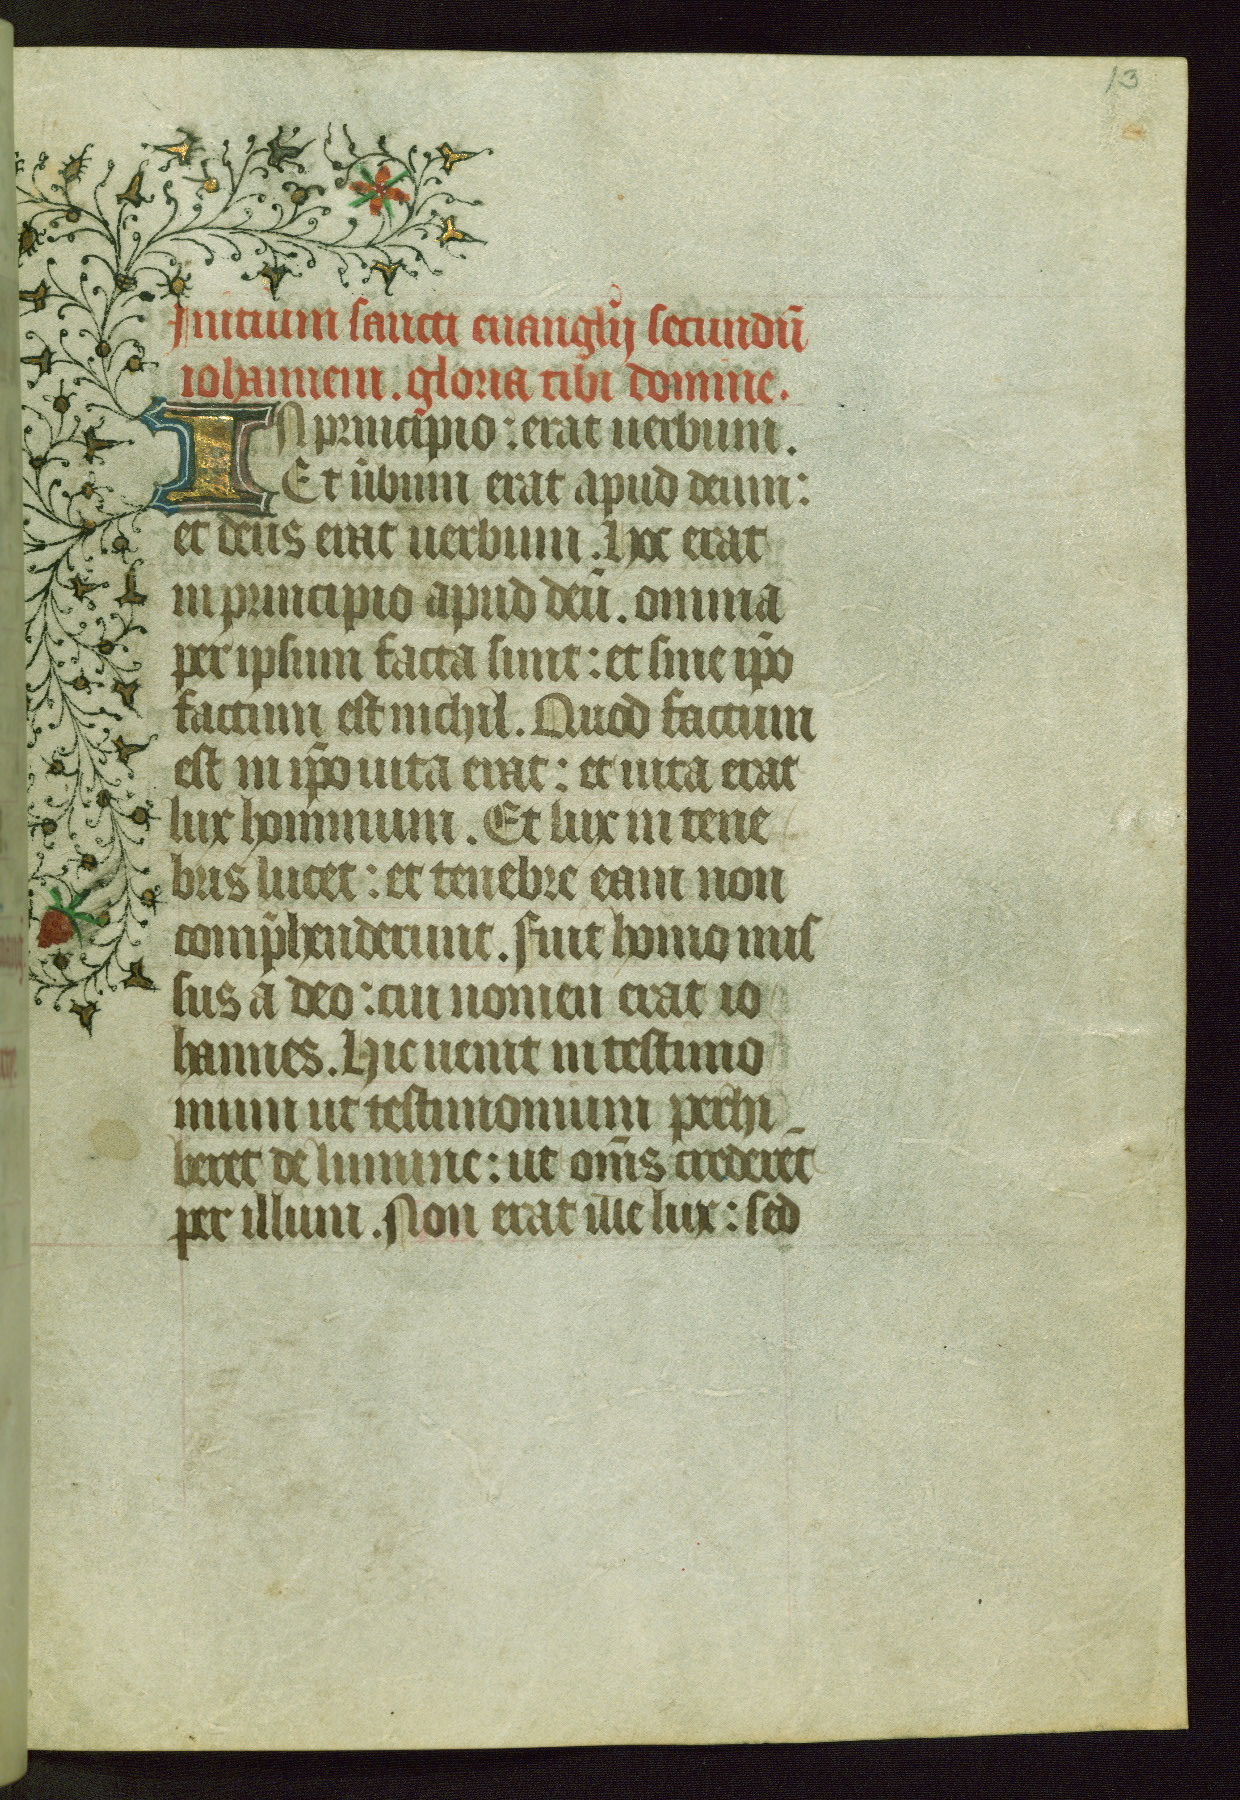 13
Inicium sancti euanglij secundū
iohannem. gloria tibi domine.
IN principio: erat uerbum.
Et ūbum erat apud deum:
et deus erat uerbum. Hoc erat
in principio apud deū. omnia
per ipsum facta sunt: et sine ip̄o
factum est nichil. Quod factum
est in ip̄o uita erat: et uita erat
lux hominum. Et lux in tene
bris lucet: et tenebre eam non
comp̄henderunt. Fuit homo mis
sus a deo: cui nomen erat io
hannes. Hic uenit in testimo
nium ut testimonium perhi_
beret de lumine: ut om̄is crederēt
per illum. Non erat ille lux: sed